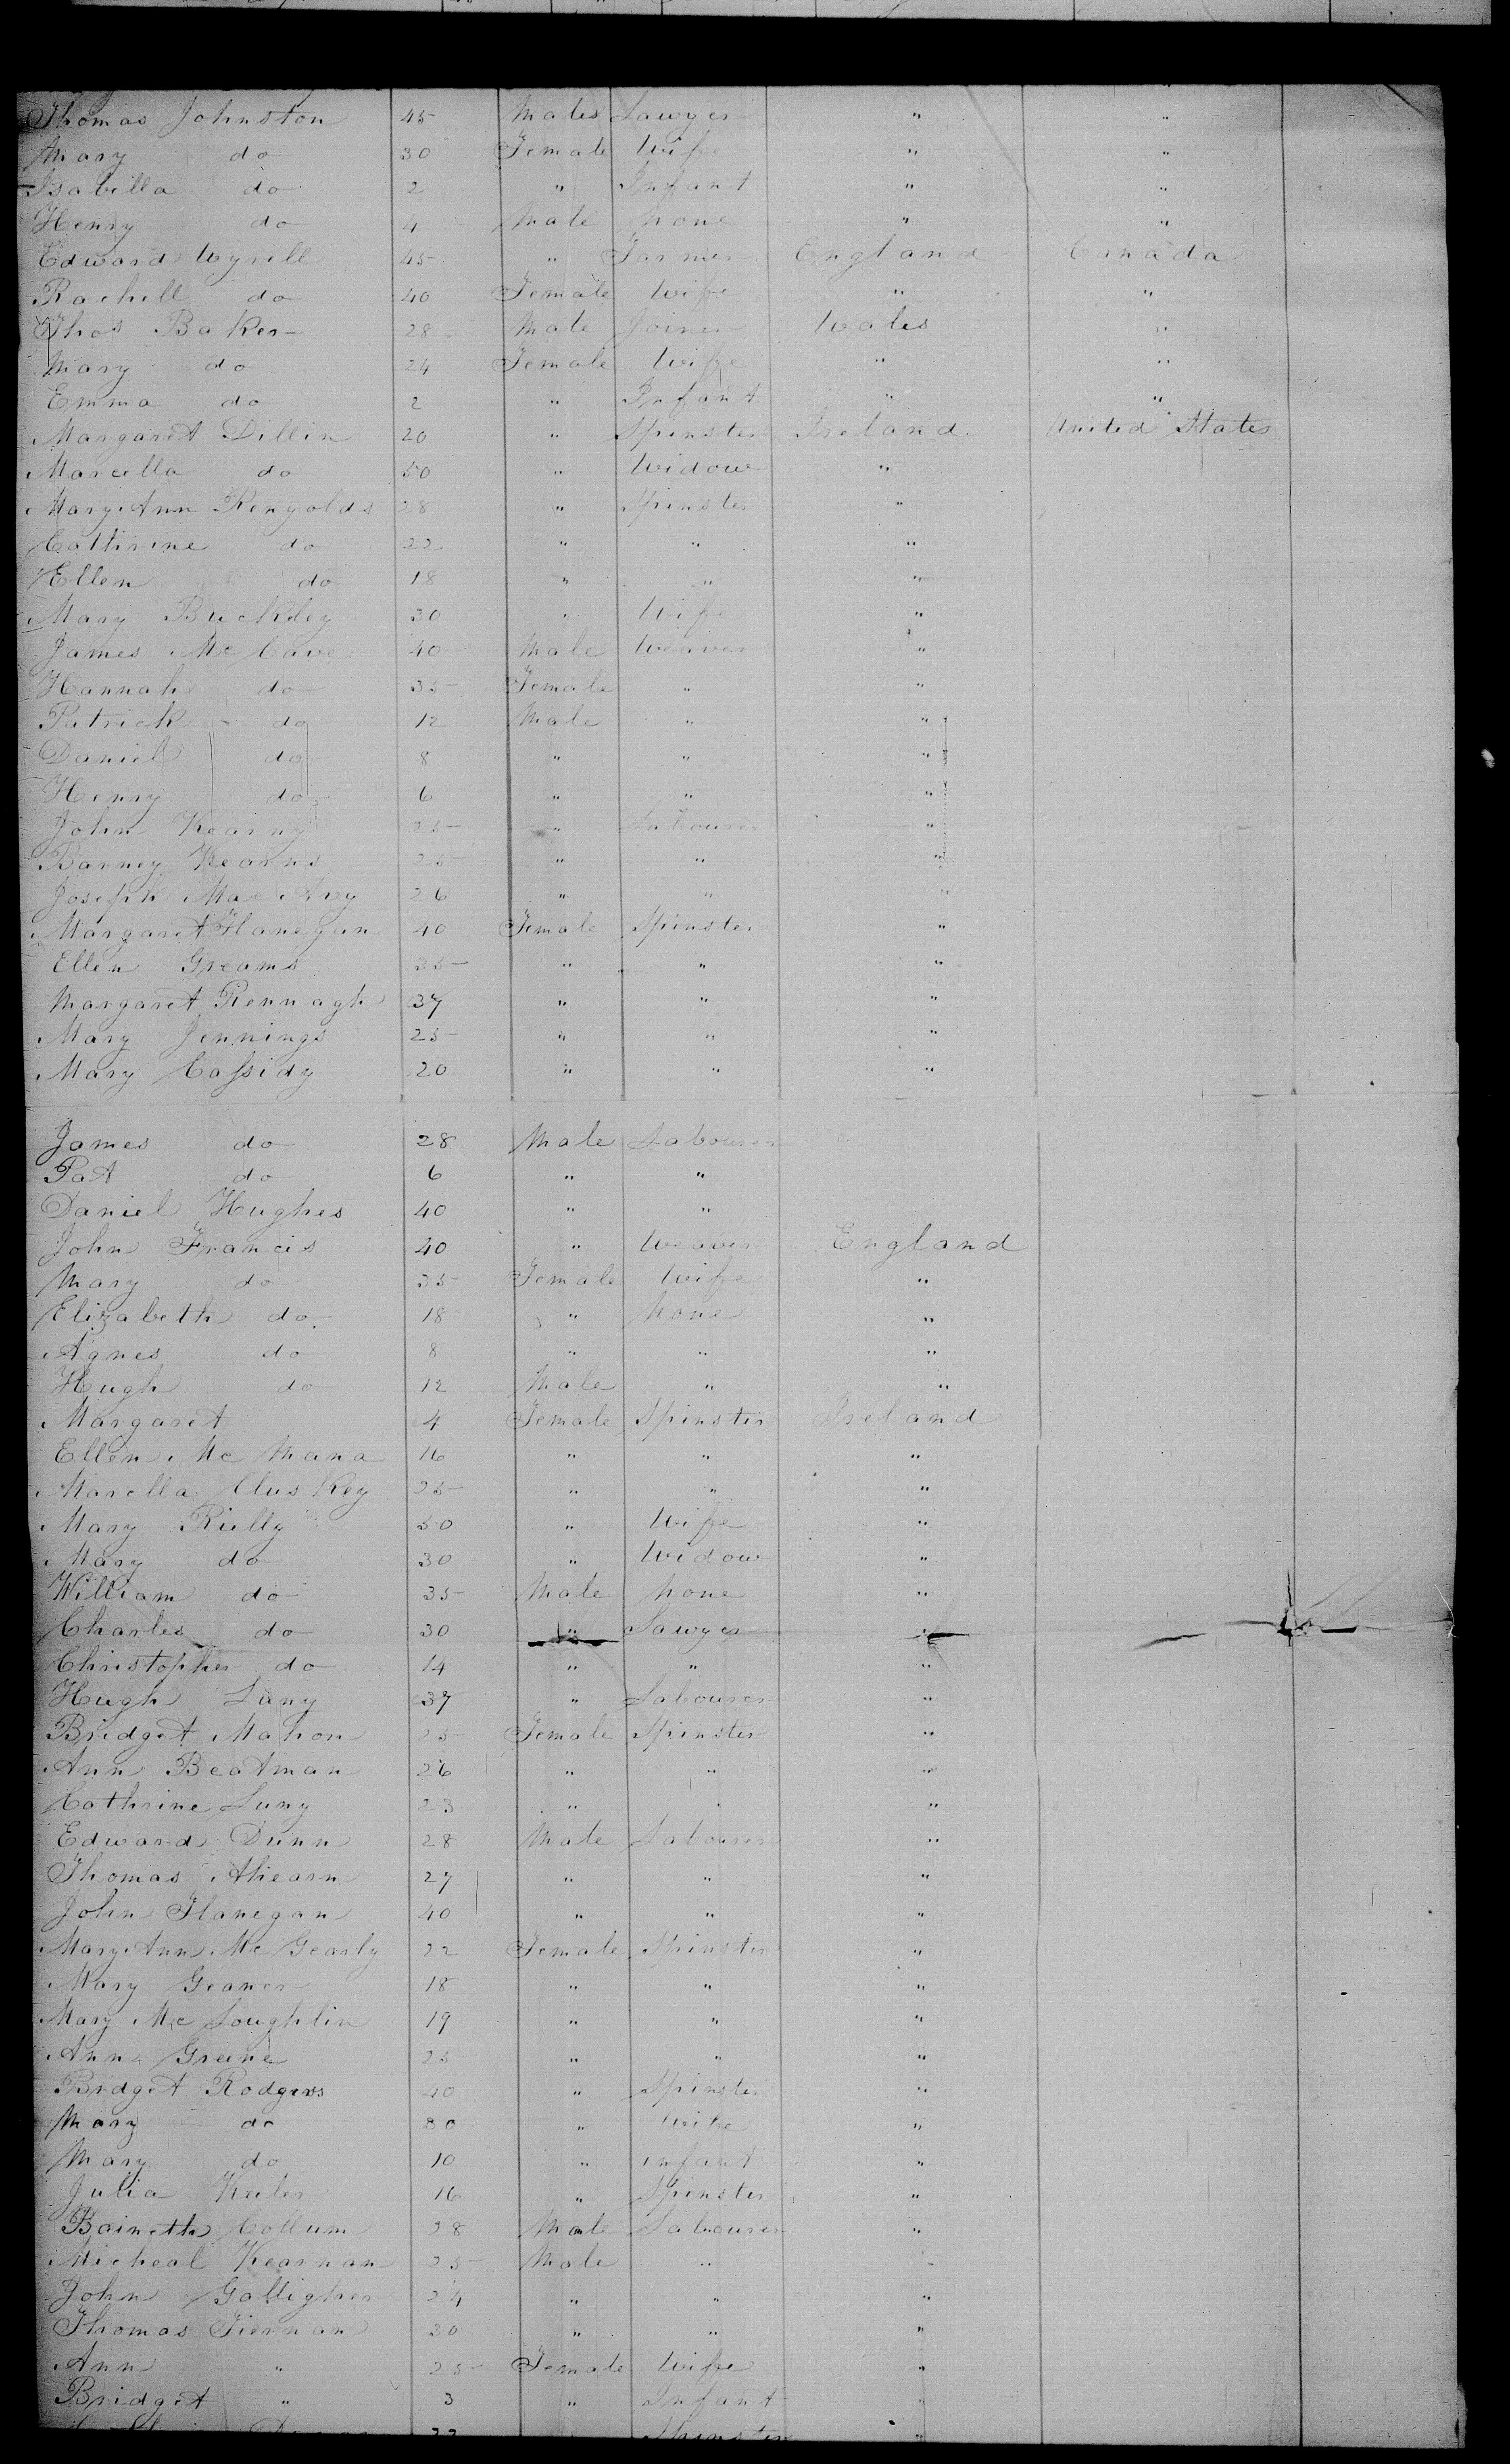 Thomas Johnston 45 Males Sawyer " "
Mary do 30 Female Wife " "
Isabella do 2 " Infant " "
Henry do 4 Male None " "
Edward Wyrill 45 " Farmer England Canada
Rachell do 40 Female Wife " "
Thos Baker 28 Male Joiner Wales "
Mary do 24 Female Wife " "
Emma do 2 " Infant " "
Margaret Dillin 20 " Spinster Ireland United States
Marcella do 50 " Widow "
Mary Ann Renyolds 28 " Spinster "
Cathrine do 22 " " "
Ellen do 18 " " "
Mary Buckley 30 " Wife "
James McCave 40 Male Weaver "
Hannah do 35 Female " "
Patrick do 12 Male " "
Daniel do 8 " " "
Henry do 6 " " "
John Kearny 25 " Labourer "
Barney Kearns 25 " " "
Joseph Mac Avoy 26 " " "
Margaret Flanegan 40 Female Spinster "
Ellen Greams 35 " " "
Margaret Rennagh 37 " " "
Mary Jennings 25 " " "
Mary Cassidy 20 " " "
James do 28 Male Labourer
Pat do 6 " "
Daniel Hughes 40 " "
John Francis 40 " Weaver England
Mary do 35 Female Wife "
Elizabeth do 18 " None "
Agnes do 8 " " "
Hugh do 12 Male " "
Margaret 4 Female Spinster Ireland
Ellen Mc Mana 16 " " "
Marella Cluskey 25 " " "
Mary Rielly 50 " Wife "
Mary do 30 " Widow "
William do 35 Male None "
Charles do 30 " Sawyer "
Christopher do 14 " " "
Hugh Lany 37 " Labourer "
Bridget Mahon 25 Female Spinster "
Ann Beatman 26 " " "
Cathrine Luny 23 " " "
Edward Dunn 28 Male Labourer "
Thomas Ahearn 27 " " "
John Flanegan 40 " " "
Mary Ann Mc Gearly 22 Female Spinster "
Mary Geaner 18 " " "
Mary Mc Loughlin 19 " " "
Ann Greene 25 " " "
Bridget Rodgers 40 " Spinster "
Mary do 80 " Wife "
Mary do 10 " infant "
Julia Keiler 16 " Spinster "
Collum 28 Male Labourer "
Micheal Kearnan 25 Male " "
John Galligher 24 " " "
Thomas Tiernan 30 " " "
Ann " 25 Female Wife "
Bridget " 3 " Infant "
22 Spinster "